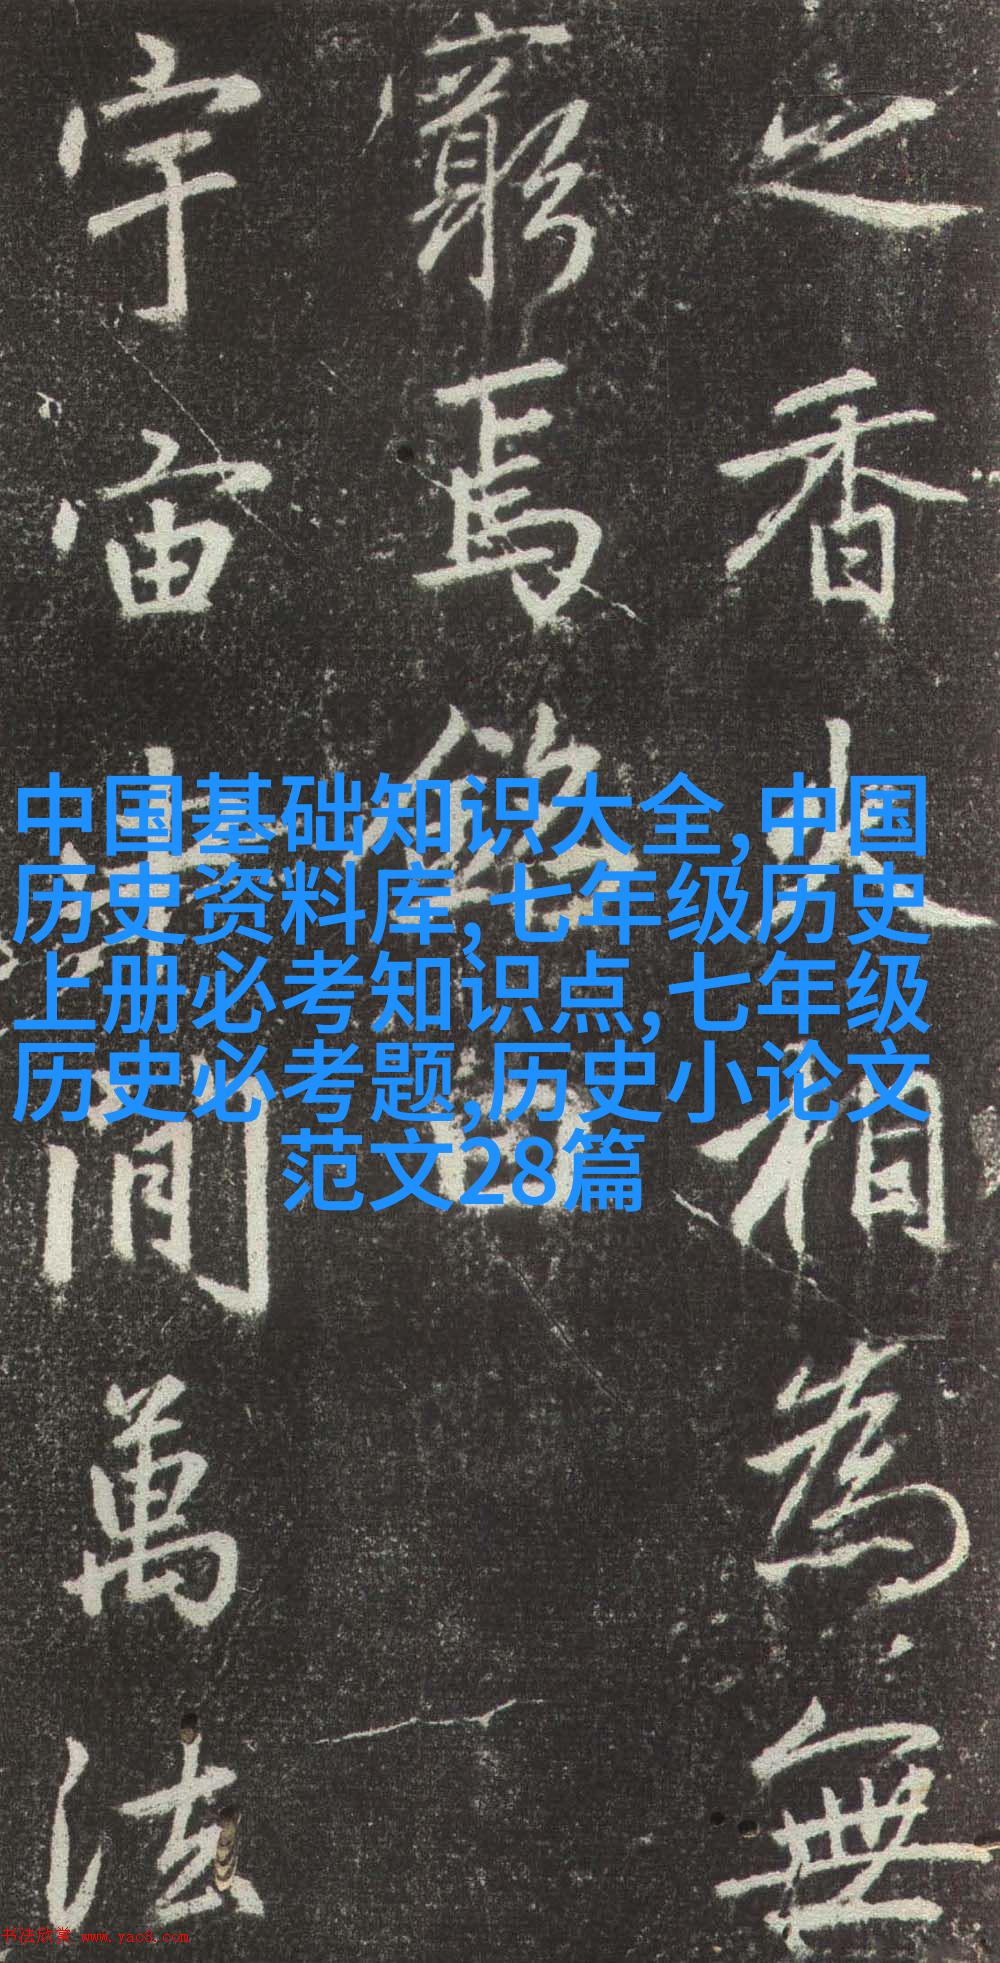 之香火相為無
窮焉
宇宙間萬法
中国基础知识大全,中国
历史资料库,七年级历史
上册必考知识点,七年级
历史必考题,历史小论文
范文28篇
书法欣赏 www.yac8.com